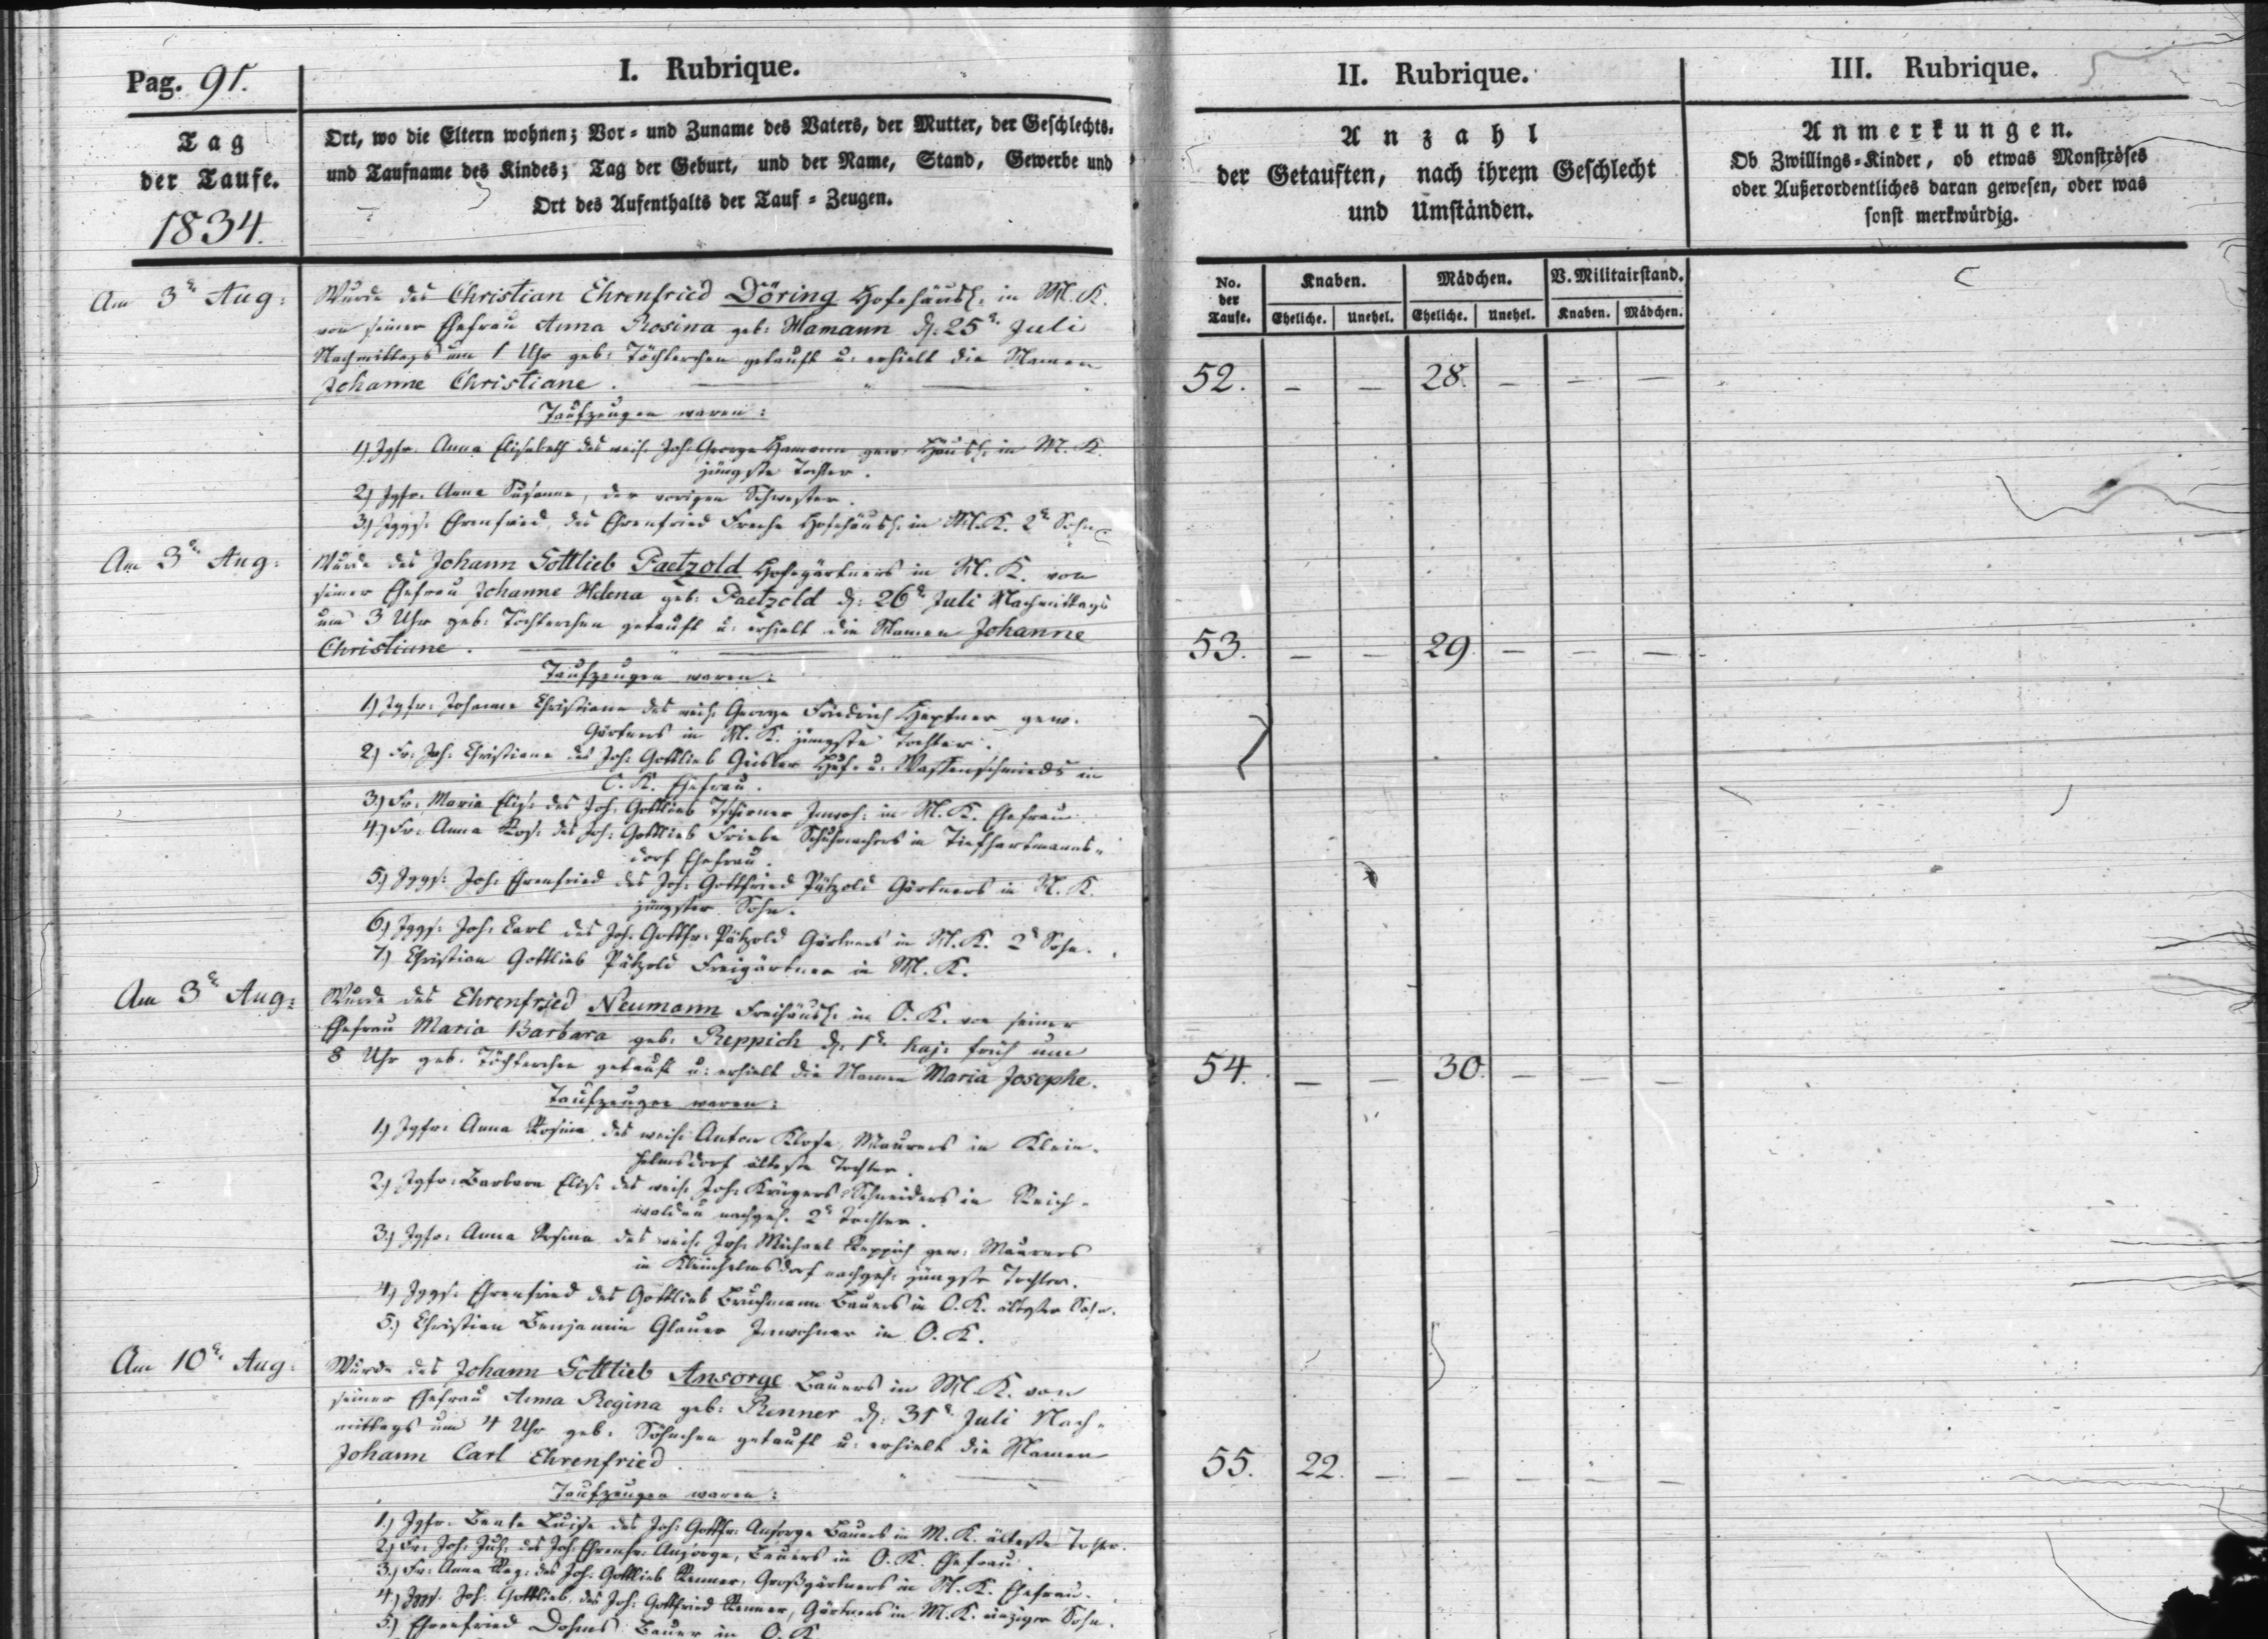 Pag. 91.
I. Rubrique.
Tag
der Taufe.
1834.
Ort, wo die Eltern wohnen; Vor- und Zuname des Vaters, der Mutter, der Geschlechts-
und Taufname des Kindes; Tag der Geburt, und der Name, Stand, Gewerbe und
Ort des Aufenthalts der Tauf-Zeugen.
Am 3t Aug:
Wurde des Christian Ehrenfried Döring Hofehäusl: in M. K.
von seiner Ehefrau Anna Rosina geb: Hamann d: 25t Juli
Nachmittags um 1 Uhr geb: Töchterchen getauft u: erhielt die Namen
Johanne Christiane.
Taufzeugen waren:
1) Jgfr. Anna Elisabeth des weil: Joh: George Hamann gew: Häusl: in M. K.
jüngste Tochter.
2) Jgfr. Anna Susanna, der vorigen Schwester.
3) Jggs: Ehrenfried, des Ehrenfried Hofehäusl: in M. K. 2t Sohn
Am 3t Aug:
Wurde des Johann Gottlieb Paetzold Hofegärtners in M. K. von
seiner Ehefrau Johanne Helena geb: Paetzold d: 26t Juli Nachmittags
um 3 Uhr geb: Töchterchen getauft u: erhielt die Namen Johanne
Christiane.
Taufzeugen waren:
1) Jgfr: Johanne Christiane des weil: George Friedrich gew.
Gärtners in M. K. jüngste Tochter.
2) Fr: Joh: Christiane des Joh: Gottlieb Huf- u: Waffenschmieds in
O. K. Ehefrau.
3) Fr: Maria Elis: des Joh: Gottlieb Tschirner Inwoh: in M. K. Ehefrau
4) Fr: Anna Ros: des Joh: Gottlieb Friebe Schuhmachers in Tiefhartmanns-
dorf Ehefrau.
5) Jggs: Joh: Ehrenfried des Joh: Gottfried Pätzold Gärtners in M. K.
jüngster Sohn.
6) Jggs: Joh: Carl des Joh: Gottfr: Pätzold Gärtners in M. K. 2t Sohn.
7) Christian Gottlieb Pätzold Freigärtner in M. K.
Am 3t Aug:
Wurde des Ehrenfried Neumann Freihäusl: in O. K. von seiner
Ehefrau Maria Barbara geb: Reppich d: 1t huj: früh um
8 Uhr geb: Töchterchen getauft u: erhielt die Namen Maria Josephe.
Taufzeugen waren:
1) Jgfr: Anna Rosina des weil: Anton Klose Maurers in Klein-
helmsdorf älteste Tochter.
2) Jgfr: Barbara Elis: des weil: Joh: Krügers Schneiders in Reich-
waldau nachgel: 2t Tochter.
3) Jgfr: Anna Rosina des weil: Joh: Michael Reppich gew: Maurers
in Kleinhelmsdorf nachgel: jüngste Tochter.
4) Jggs: Ehrenfried des Gottlieb Bauers in O. K. ältester Sohn.
5) Christian Benjamin Glauer Inwohner in O. K.
Am 10t Aug:
Wurde des Johann Gottlieb Ansorge Bauers in M. K. von
seiner Ehefrau Anna Regina geb: Renner d: 31t Juli Nach-
mittags um 4 Uhr geb: Söhnchen getauft u: erhielt die Namen
Johann Carl Ehrenfried
Taufzeugen waren:
1) Jgfr: Beate Luise des Joh: Gottfr: Ansorge Bauers in M. K. älteste Tochter.
2) Fr: Joh: Jul: des Joh: Ehrenfr: Ansorge, Bauers in O. K. Ehefrau.
3) Fr: Anna Reg: des Joh: Gottlieb Renner, Großgärtners in M. K. Ehefrau.
4) Jggs: Joh: Gottlieb, des Joh: Gottfried Renner, Gärtners in M. K. einziger Sohn.
5) Ehrenfried Dohms Bauer in O. K.
II. Rubrique.
Anzahl
der Getauften, nach ihrem Geschlecht
und Umständen.
III. Rubrique.
Anmerkungen.
Ob Zwillings-Kinder, ob etwas Monströses
oder Außerordentliches daran gewesen, oder was
sonst merkwürdig.
No. der Taufe. Knaben. Mädchen. V. Militairstand.
Eheliche. Unehel. Eheliche. Unehel. Knaben. Mädchen.
52. – – 28. – – –
53. – – 29. – – –
54. – – 30. – – –
55. 22. – – – – –